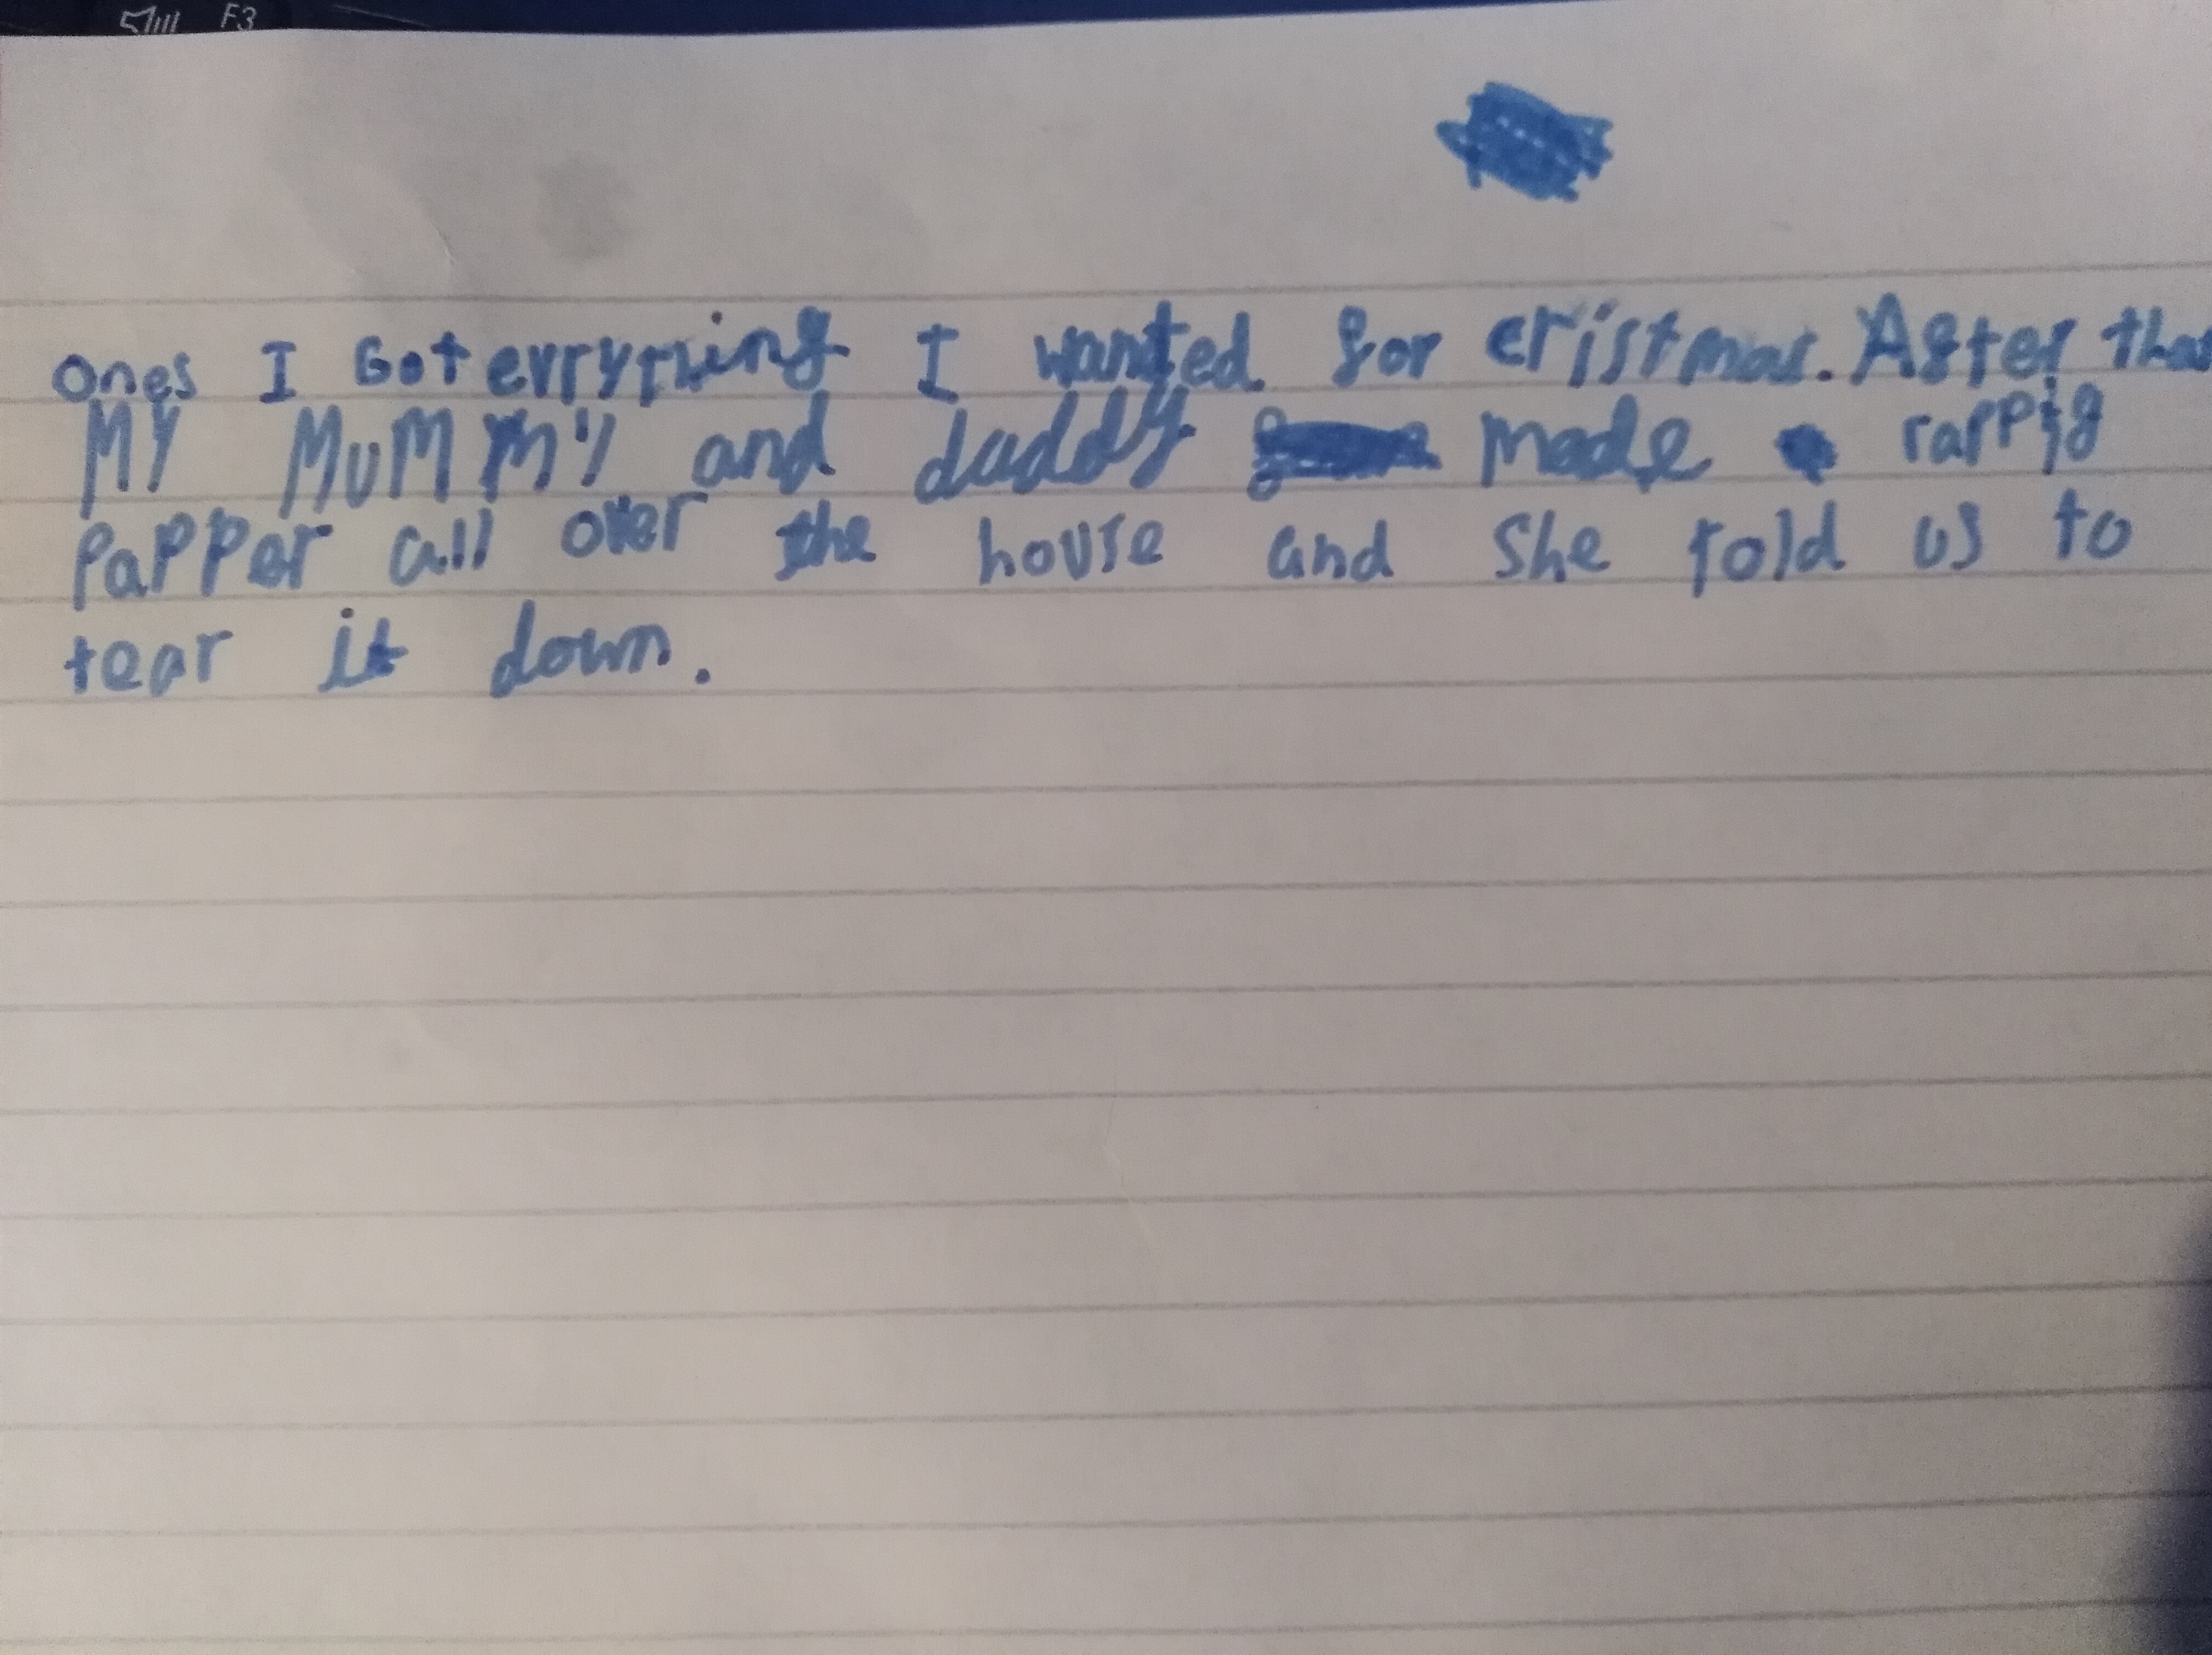 F3
ones I Got evrything I wanted for cristmas. After that
MY MUMMY and daddy made rappig
Papper all over the house and she told us to
tear it down.